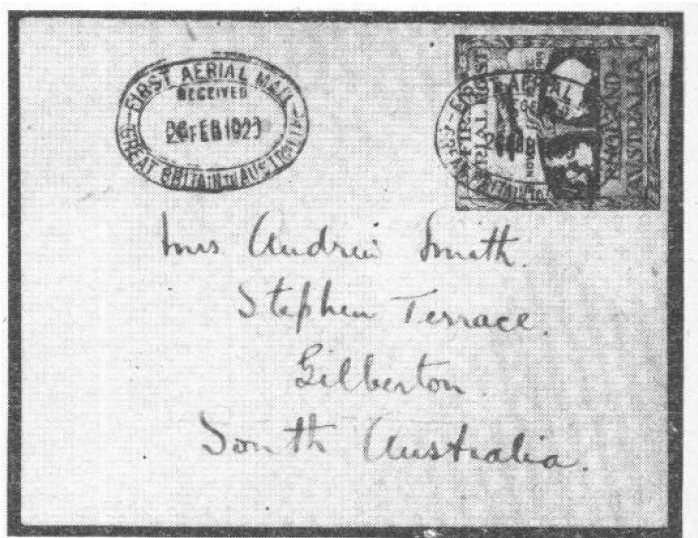 FIRST AERIAL MAIL
RECEIVED
26 FEB 1920
GREAT BRITAIN TO AUSTRALIA
FIRST AERIAL POST
ENGLAND AUSTRALIA
Mrs Andrew Smith.
Stephen Terrace.
Gilberton
South Australia.